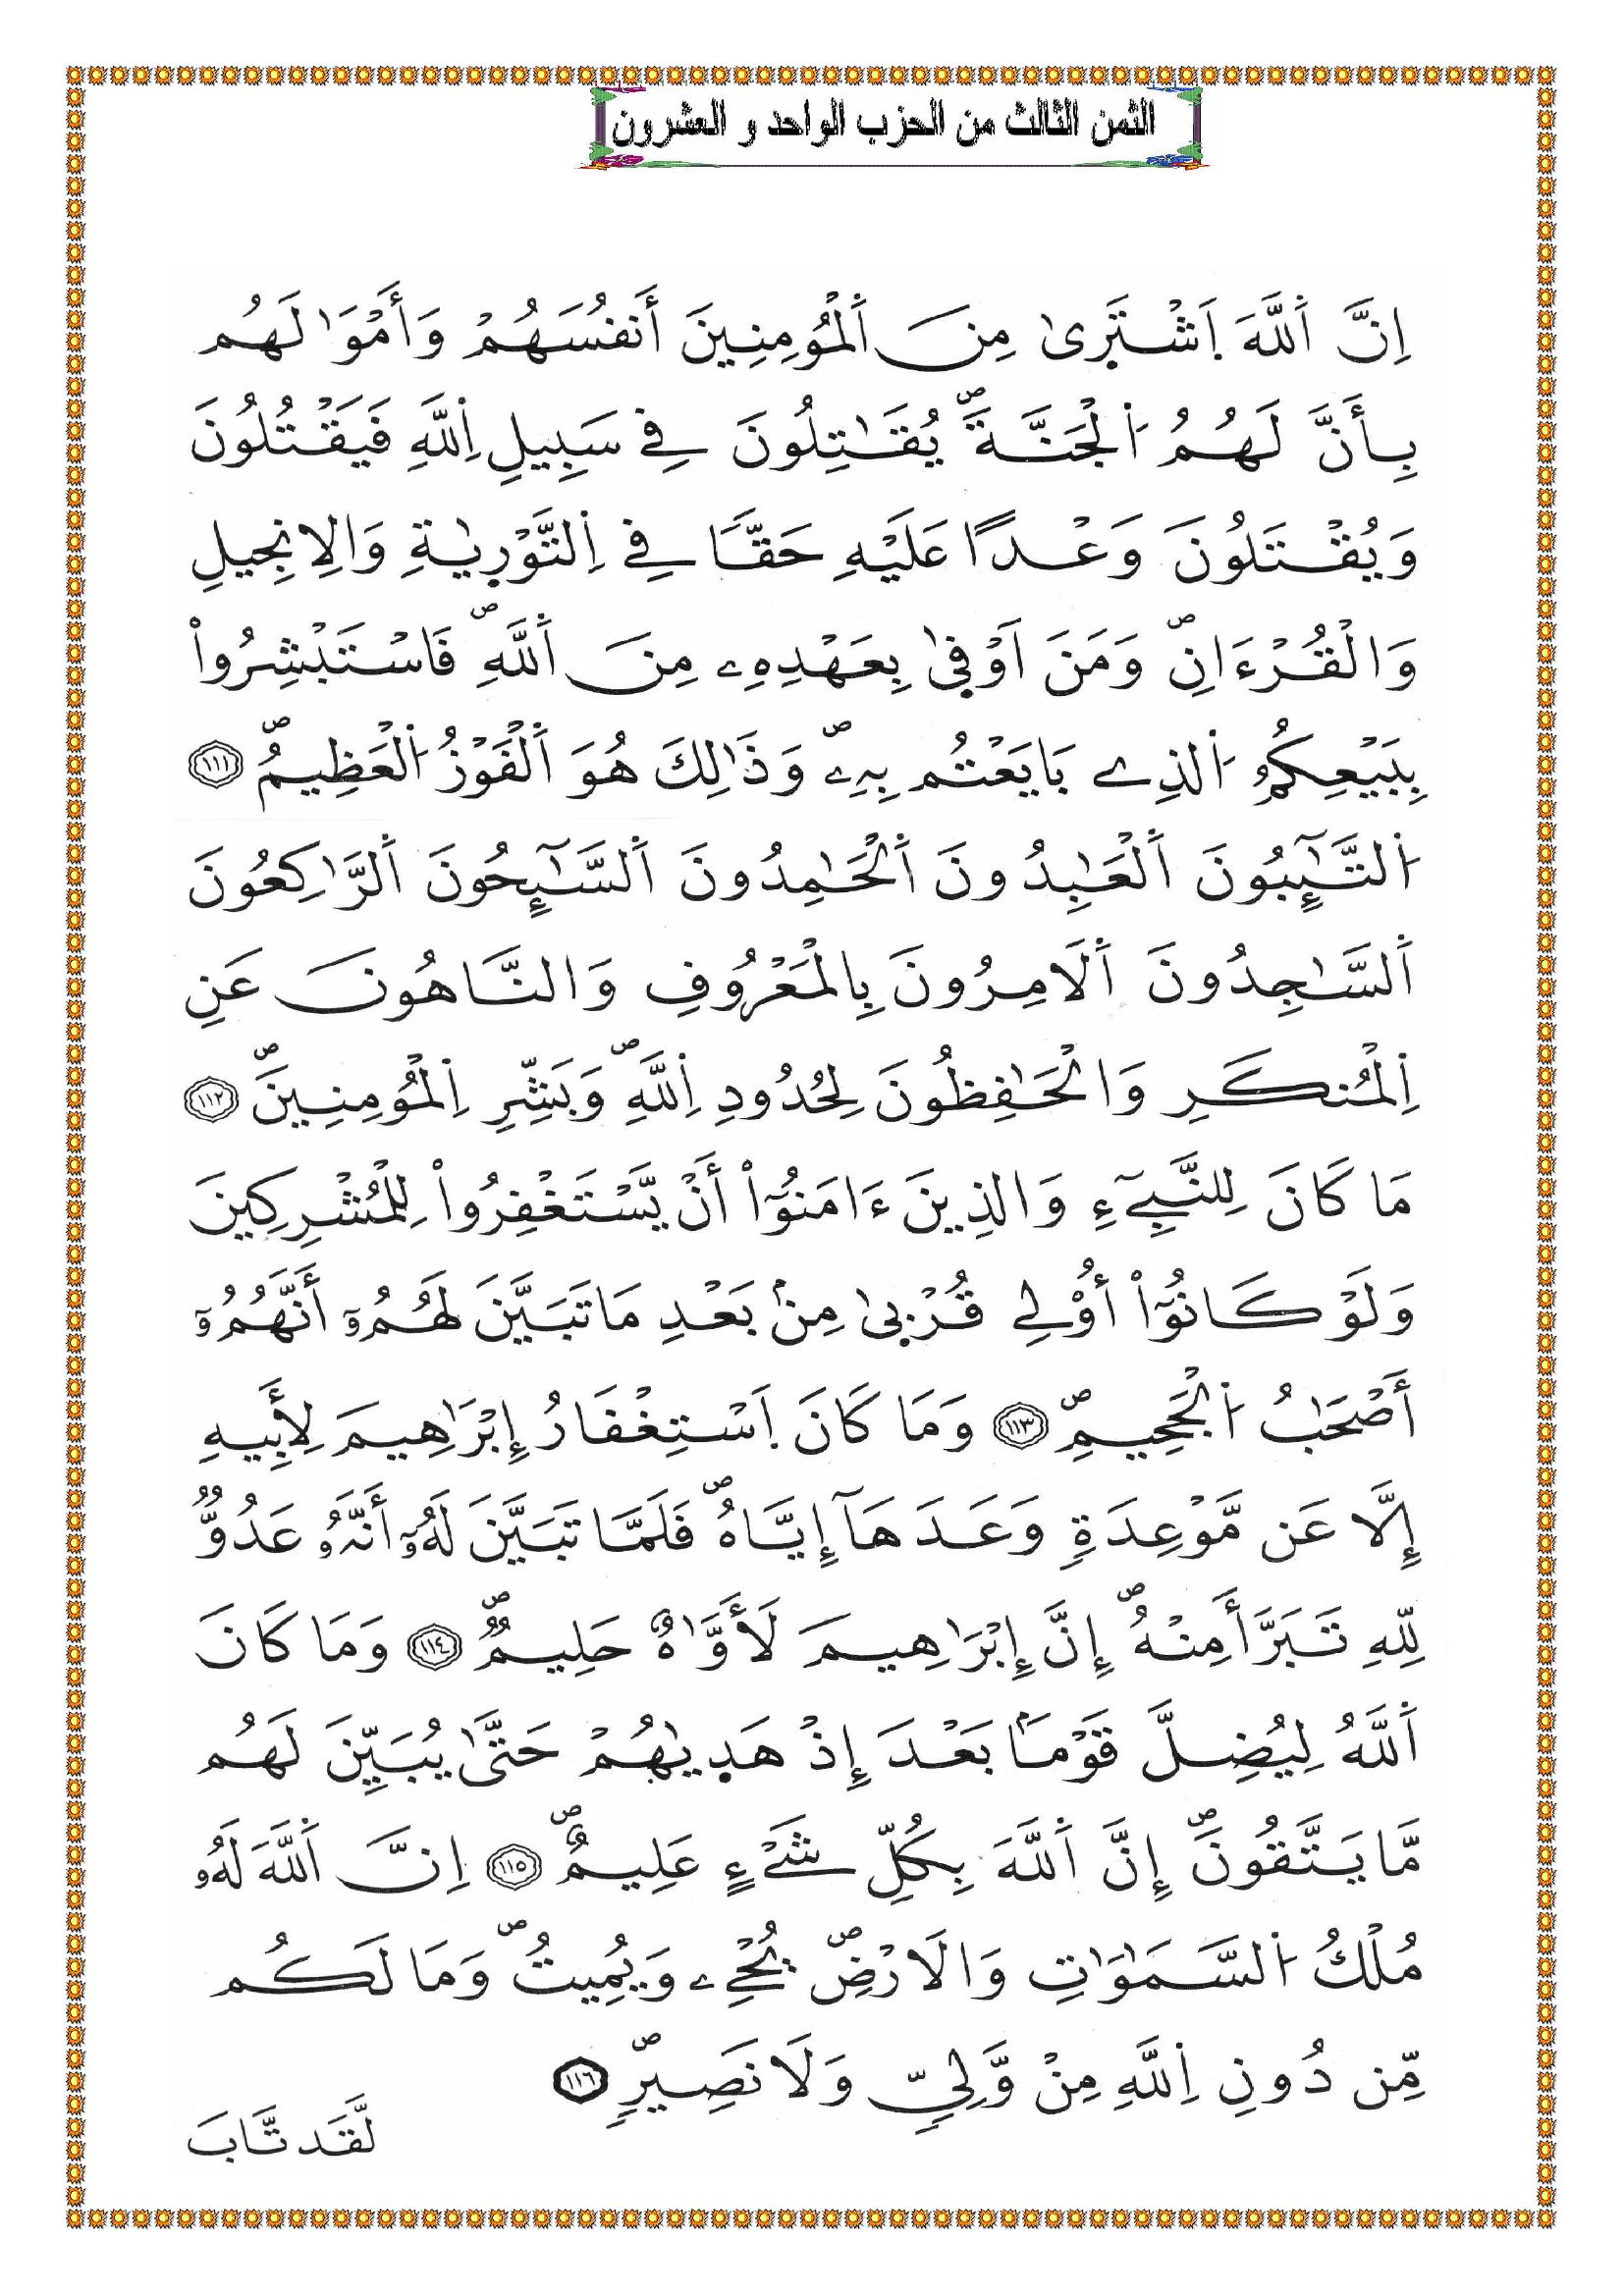 الثمن الثالث من الحزب الواحد و العشرون
إِنَّ اَ۬للَّهَ اَ۪شْتَر۪يٰ مِنَ اَ۬لْمُومِنِينَ أَنفُسَهُمْ وَأَمْوَٰلَهُم
بِأَنَّ لَهُمُ اُ۬لْجَنَّةَۖ يُقَٰتِلُونَ فِے سَبِيلِ اِ۬للَّهِ فَيَقْتُلُونَ
وَيُقْتَلُونَ وَعْداً عَلَيْهِ حَقّاٗ فِے اِ۬لتَّوْر۪يٰةِ وَالِانجِيلِ
وَالْقُرْءَانِۖ وَمَنَ اَوْف۪يٰ بِعَهْدِهِۦ مِنَ اَ۬للَّهِۖ فَاسْتَبْشِرُواْ
بِبَيْعِكُمُ اُ۬لذِے بَايَعْتُم بِهِۦۖ وَذَٰلِكَ هُوَ اَ۬لْفَوْزُ اُ۬لْعَظِيمُۖ ١١١
اُ۬لتَّٰٓئِبُونَ اَ۬لْعَٰبِدُونَ اَ۬لْحَٰمِدُونَ اَ۬لسَّٰٓئِحُونَ اَ۬لرَّٰكِعُونَ
اَ۬لسَّٰجِدُونَ اَ۬لَامِرُونَ بِالْمَعْرُوفِ وَالنَّاهُونَ عَنِ
اِ۬لْمُنكَرِ وَالْحَٰفِظُونَ لِحُدُودِ اِ۬للَّهِۖ وَبَشِّرِ اِ۬لْمُومِنِينَۖ ١١٢
مَا كَانَ لِلنَّبِےٓءِ وَالذِينَ ءَامَنُوٓاْ أَنْ يَّسْتَغْفِرُواْ لِلْمُشْرِكِينَ
وَلَوْ كَانُوٓاْ أُوْلِے قُرْب۪يٰ مِنۢ بَعْدِ مَا تَبَيَّنَ لَهُمُۥٓ أَنَّهُمُۥٓ
أَصْحَٰبُ اُ۬لْجَحِيمِۖ ١١٣ وَمَا كَانَ اَ۪سْتِغْفَارُ إِبْرَٰهِيمَ لِأَبِيهِ
إِلَّا عَن مَّوْعِدَةٖ وَعَدَهَآ إِيَّاهُۖ فَلَمَّا تَبَيَّنَ لَهُۥٓ أَنَّهُۥ عَدُوّٞ
لِّلهِ تَبَرَّأَ مِنْهُۖ إِنَّ إِبْرَٰهِيمَ لَأَوَّٰهٌ حَلِيمٞۖ ١١٤ وَمَا كَانَ
اَ۬للَّهُ لِيُضِلَّ قَوْماَۢ بَعْدَ إِذْ هَد۪يٰهُمْ حَتَّىٰ يُبَيِّنَ لَهُم
مَّا يَتَّقُونَۖ إِنَّ اَ۬للَّهَ بِكُلِّ شَےْءٍ عَلِيمٌۖ ١١٥ اِنَّ اَ۬للَّهَ لَهُۥ
مُلْكُ اُ۬لسَّمَٰوَٰتِ وَالَارْضِۖ يُحْيِۦ وَيُمِيتُۖ وَمَا لَكُم
مِّن دُونِ اِ۬للَّهِ مِنْ وَّلِيّٖ وَلَا نَصِيرٖۖ ١١٦
لَّقَد تَّابَ